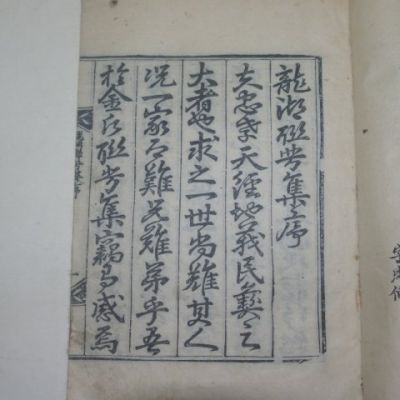 龍湖聯芳集序
夫忠孝天經地義民彝之
大者也求之一世尚難其人
況一家難兄難弟乎吾
於金氏聯芳集竊感焉